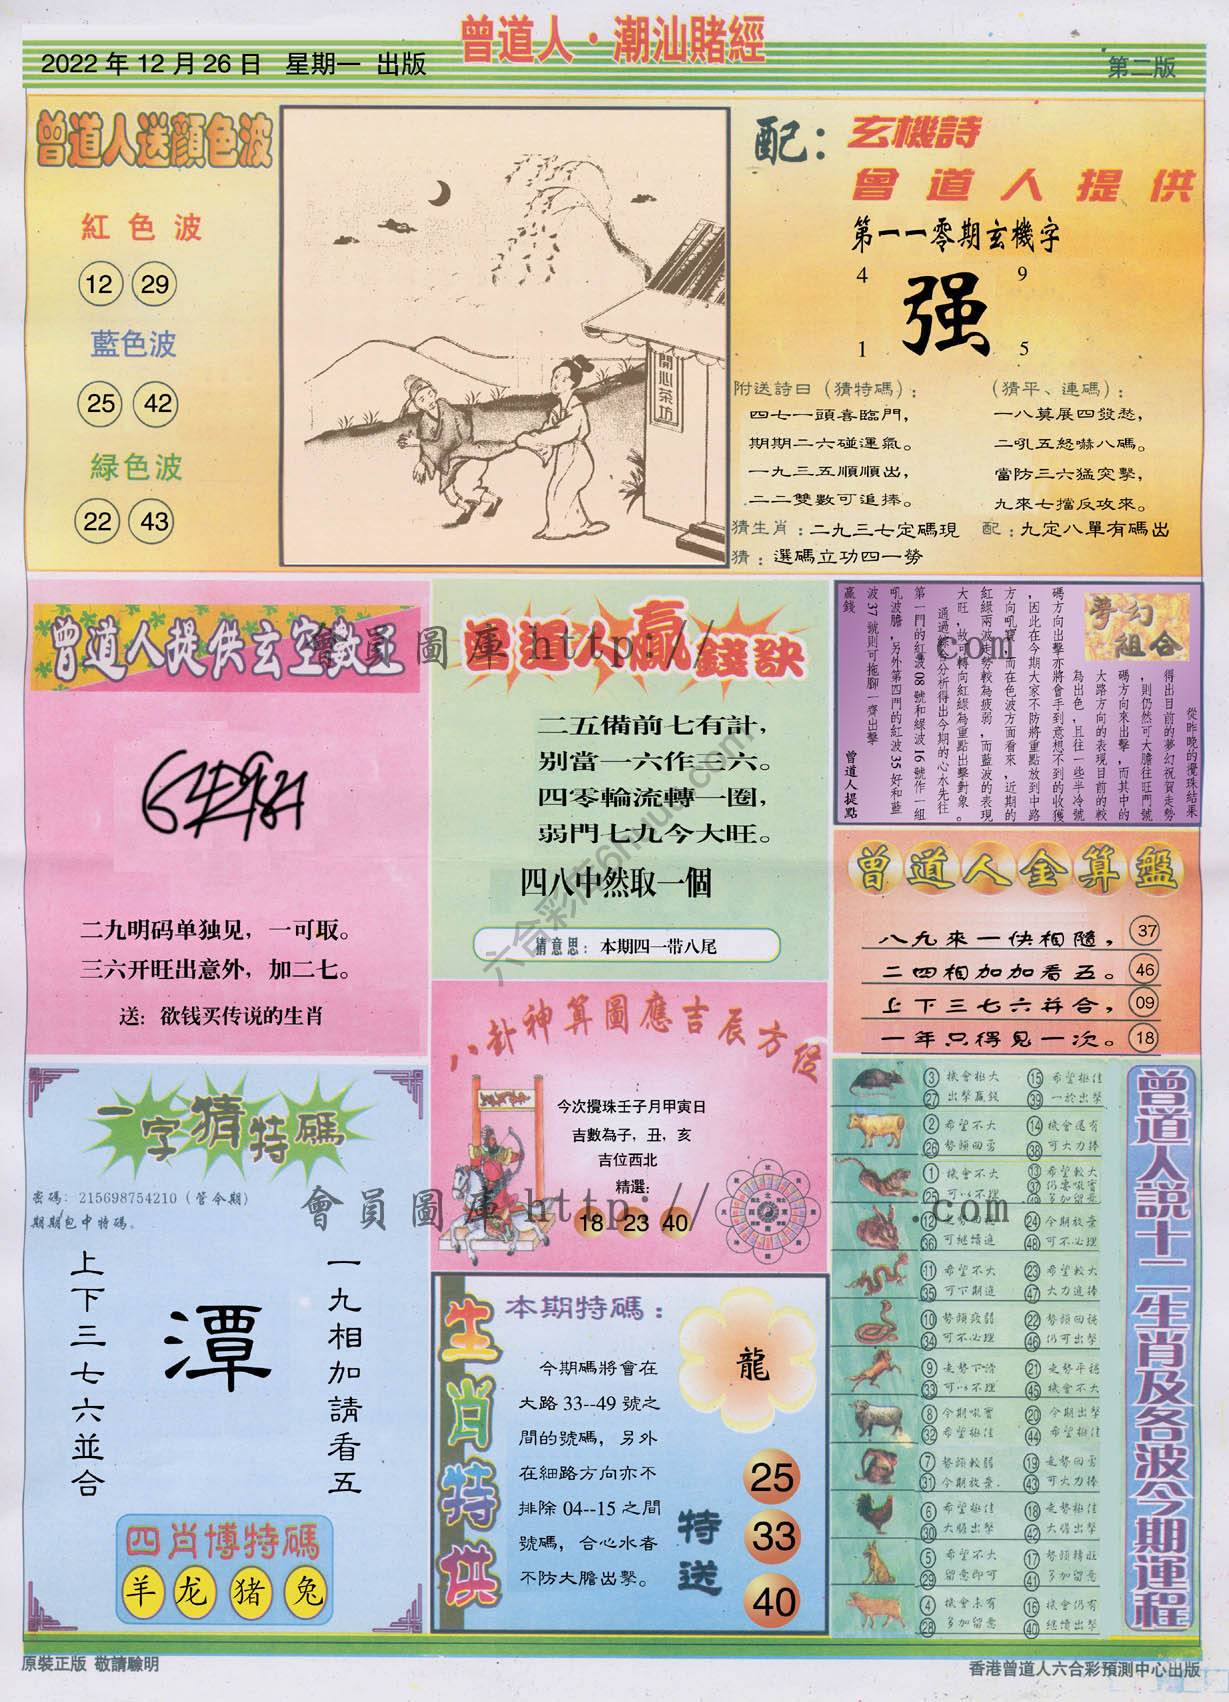 曾道人·潮汕賭經
2022 年 12 月 26 日 星期一 出版
第二版
曾道人送顏色波
紅色波
12 29
藍色波
25 42
緑色波
22 43
開心茶坊
配：玄機詩
曾道人提供
第一一零期玄機字
4 9
强
1 5
附送詩曰（猜特碼）：
四七一頭喜臨門，
期期二六碰運氣。
一九三五順順出，
二二雙數可追捧。
（猜平、連碼）：
一八莫展四發愁，
二吼五怒嚇八碼。
當防三六猛突擊，
九來七擋反攻來。
猜生肖：二九三七定碼現
配：九定八單有碼出
猜：選碼立功四一勞
曾道人提供玄空數王
二九明码单独见，一可取。
三六开旺出意外，加二七。
送：欲钱买传说的生肖
會員圖庫 http://
.com
曾道人贏錢訣
二五備前七有計，
别當一六作三六。
四零輪流轉一圈，
弱門七九今大旺。
四八中然取一個
猜意思：本期四一带八尾
夢幻組合
從昨晚的攪珠結果
得出目前的夢幻祝賀走勢
，則仍然可大膽往旺門號
碼方向來出擊，而其中的
大路方向的表現目前的較
為出色，且往一些半冷號
碼方向出擊亦將會手到意想不到的收獲
，因此在今期大家不防將重點放到中路
方向吼寶，而在色波方面看來，近期的
紅綠兩波走勢較為疲弱，而藍波的表現
大旺，故可轉向紅綠為重點出擊對象。
通過綜合分析得出今期的心水先往
第一門的紅波 08 號和綠波 16 號作一組
吼波膽，另外第四門的紅波 35 好和藍
波 37 號則可拖腳一齊出擊
贏錢
曾道人提點
曾道人金算盤
八九來一伏相隨， 37
二四相加加看五。 46
上下三七六幷合， 09
一年只得見一次。 18
一字猜特碼
密碼：215698754210（管令期）
期期包中特碼。
上下三七六並合
潭
一九相加請看五
四肖博特碼
羊 龙 猪 兔
八卦神算圖應吉辰方位
今次攪珠壬子月甲寅日
吉數為子，丑，亥
吉位西北
精選：
18 23 40
會員圖庫 http://
.com
生肖特供
本期特碼：
今期碼將會在
大路 33--49 號之
間的號碼，另外
在細路方向亦不
排除 04--15 之間
號碼，合心水者
不防大膽出擊。
龍
特送
25
33
40
曾道人説十二生肖及各波今期運程
3 機會極大 15 希望極佳
27 出擊贏錢 39 一於出擊
2 希望不大 14 機會還有
26 勢頭回勇 38 可大力捧
1 機會不大 13 希望較大
25 可以不理 37 仍要吼實
49 多加留意
12 24 今期放棄
36 可繼續追 48 可不必理
11 希望不大 23 希望較大
35 可下期追 47 大力追捧
10 勢頭疲弱 22 勢頭回穩
34 可不必理 46 仍可出擊
9 走勢下滑 21 走勢平穩
33 可以不理 45 機會不大
8 今期吼實 20 今期出擊
32 希望極佳 44 希望極佳
7 勢頭較弱 19 走勢回勇
31 今期放棄 43 可大力捧
6 希望極佳 18 走勢極佳
30 大膽出擊 42 大膽出擊
5 希望不大 17 勢頭轉旺
29 留意即可 41 多加留意
4 機會未有 16 機會仍有
28 多加留意 40 繼續出擊
原裝正版 敬請驗明
香港曾道人六合彩預測中心出版